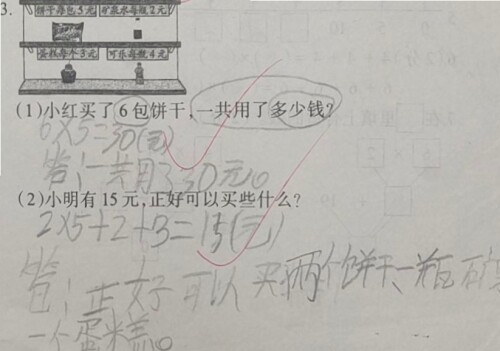 3.
饼干每包5元 矿泉水每瓶2元
蛋糕每个3元 可乐每瓶4元
(1)小红买了6包饼干,一共用了多少钱?
6×5=30(元)
答:一共用了30元。
(2)小明有15元,正好可以买些什么?
2×5+2+3=15(元)
答:正好可以买两个饼干、一瓶矿
一个蛋糕。